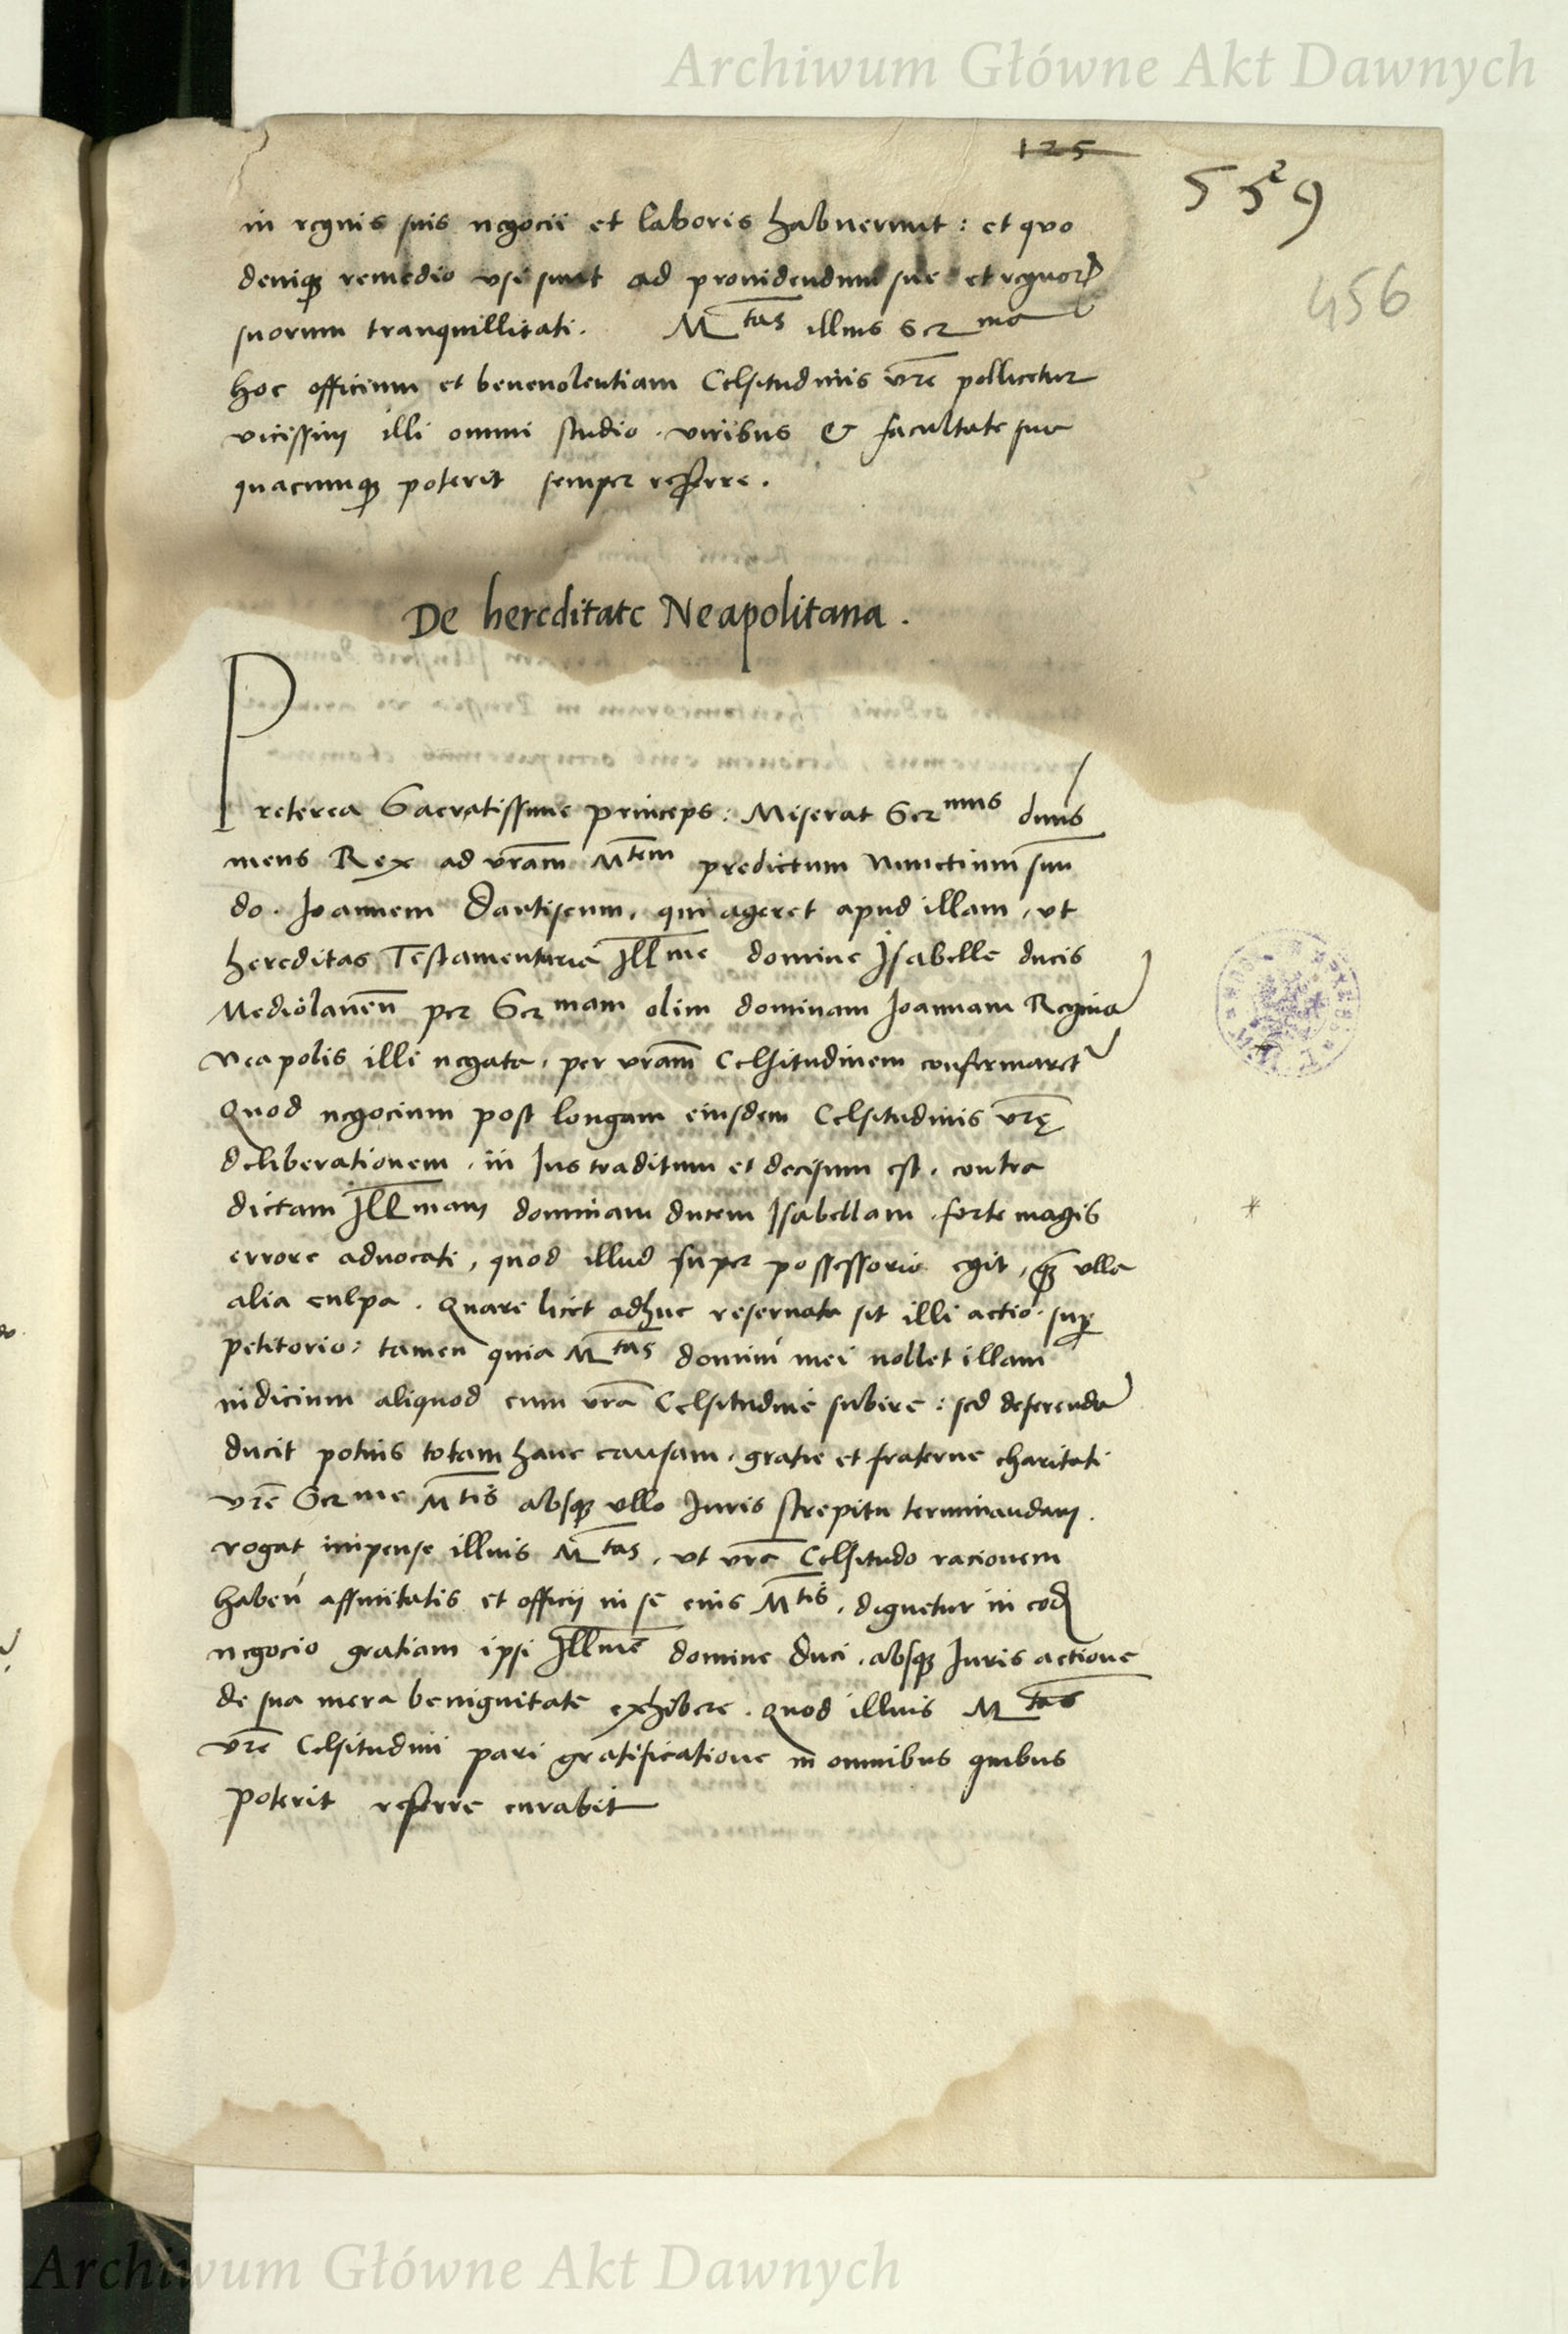 Archiwum Główne Akt Dawnych
125
55²9
456
in regnis suis negocii et laboris habuerunt : et quo
deniq₃ remedio usi sunt ad providendum sue et regnorꝝ
suorum tranquillitati. M^tas illius Ser^ma
hoc officium et benevolentiam Celsitudinis vr̄e pollicetur
vicissim illi omni studio . viribus & facultate sua
quacumq₃ poterit semper referre .
De hereditate Neapolitana .
Preterea Sacratissime princeps : Miserat Ser^mus dnus
meus Rex ad vrām M^tem predictum Nunctium suū
do . Joannem Dantiscum, qui ageret apud illam, ut
hereditas Testamentarie Ill^me domine Isabelle ducis
Mediolaneñ per Ser^mam olim dominam Joannam Regina
Neapolis illi negata, per vrām Celsitudinem confirmaret
Quod negocium post longam eiusdem Celsitudinis vr̄ę
deliberationem . in Jus traditum et decisum est . contra
dictam Ill^mam dominam ducem Isabellam . forte magis
errore advocati, quod illud super possessorio egit, q̄ ulla
alia culpa . Quare licet adhuc reservata sit illi actio . sup
petitorio : tamen quia M^tas domini mei nollet illam
iudicium aliquod cum vrā Celsitudine subire : sed deferenda
ducit potius totam hanc causam . gratie et fraterne charitati
vr̄e Ser^me M^tis absq₃ ullo Juris strepitu terminandam .
rogat impense illius M^tas, ut vrā Celsitudo racionem
habeń affinitatis et officij in se eius M^tis, dignetur in eod
negocio gratiam ipsi Ill^me domine Duci . absq₃ Juris actione
de sua mera benignitate exhibere . Quod illius M^tas
vr̄e Celsitudini pari gratificatione in omnibus quibus
poterit referre curabit
*
Archiwum Główne Akt Dawnych